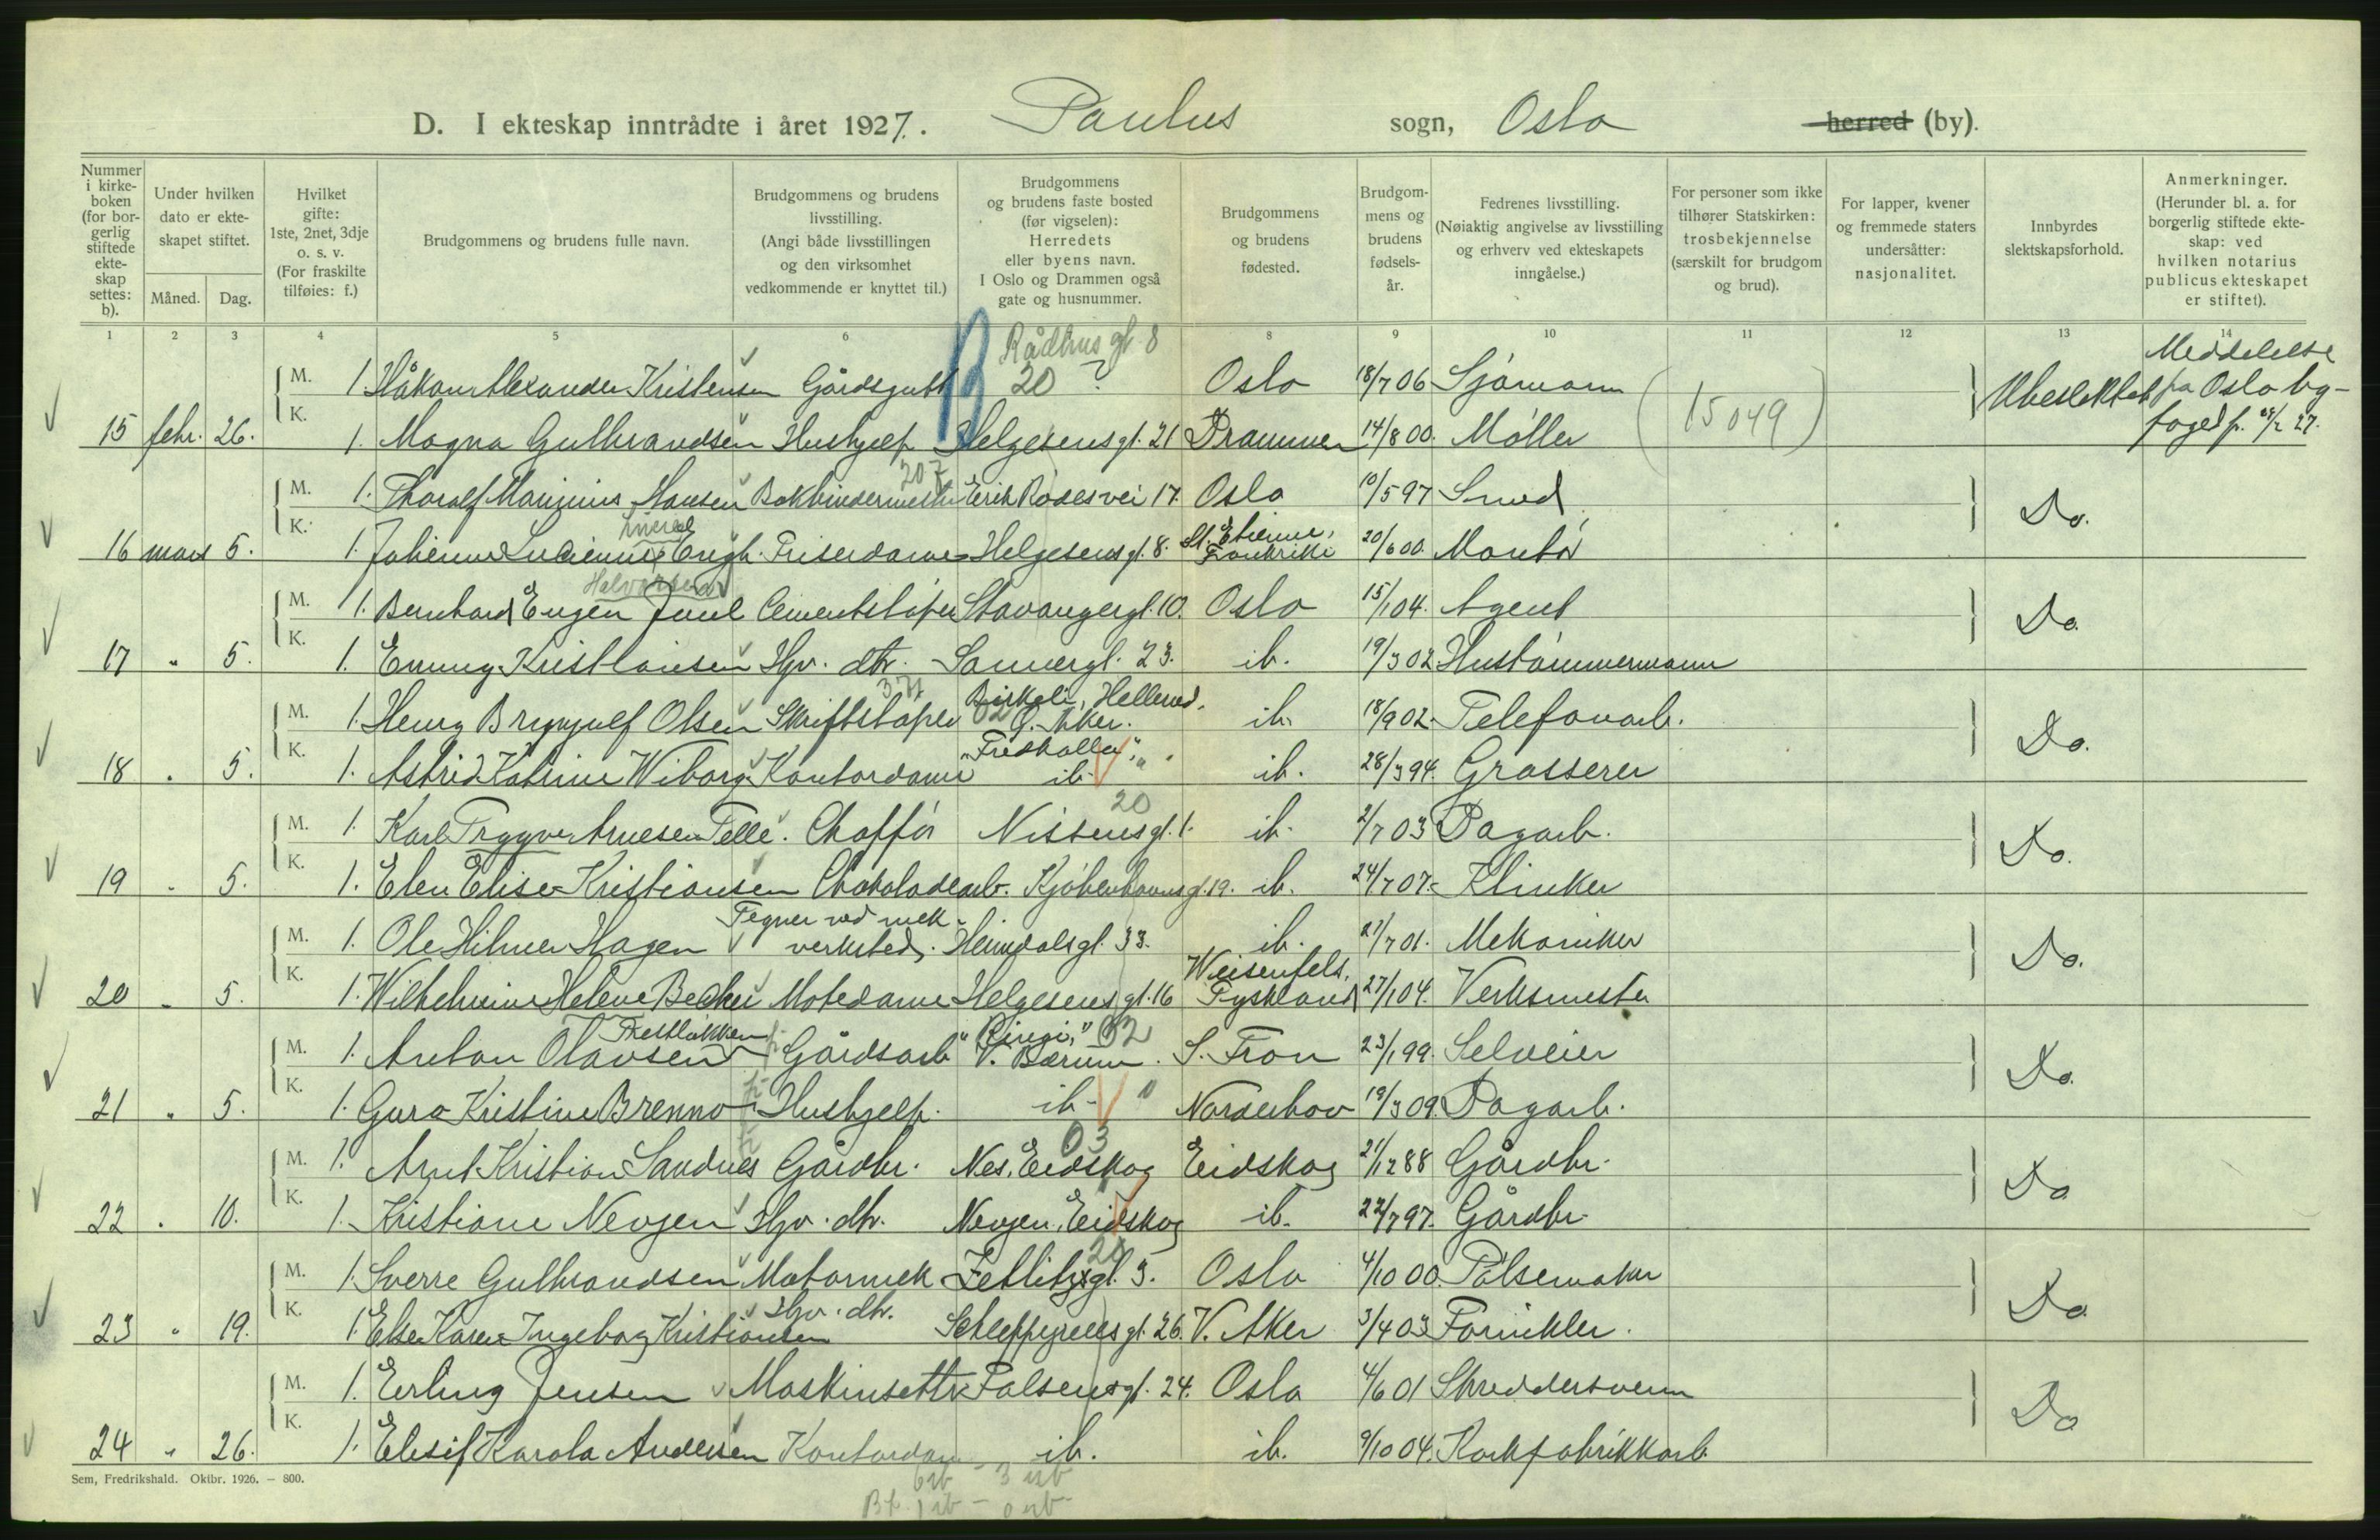 D. I ekteskap inntrådte i året 1927. Paulus sogn, Oslo herred (by).
Nummer i kirkeboken (for borgerlig stiftede ekteskap settes: b).
Under hvilken dato er ekteskapet stiftet.
Måned. Dag.
Hvilket gifte: 1ste, 2net, 3dje o. s. v. (For fraskilte tilføies: f.)
Brudgommens og brudens fulle navn.
Brudgommens og brudens livsstilling. (Angi både livsstillingen og den virksomhet vedkommende er knyttet til.)
Brudgommens og brudens faste bosted (før vigselen): Herredets eller byens navn. I Oslo og Drammen også gate og husnummer.
Brudgommens og brudens fødested.
Brudgommens og brudens fødselsår.
Fedrenes livsstilling. (Nøiaktig angivelse av livsstilling og erhverv ved ekteskapets inngåelse.)
For personer som ikke tilhører Statskirken: trosbekjennelse (særskilt for brudgom og brud).
For lapper, kvener og fremmede staters undersåtter: nasjonalitet.
Innbyrdes slektskapsforhold.
Anmerkninger. (Herunder bl. a. for borgerlig stiftede ekteskap: ved hvilken notarius publicus ekteskapet er stiftet).
1 2 3 4 5 6 8 9 10 11 12 13 14
Rådhusgt. 8
M. 1. Håkon Alexander Kristensen Gårdsgutt 20 ? Oslo 18/7 06 Sjømann Ubeslektet Meddelelse fra Oslo byfoged
15 febr. 26. K. 1. Magna Gulbrandsen Hushjelp Helgesensgt. 21 Drammen 14/8 00. Møller (15049)
207
M. 1. Thoralf Marinius Hansen Bokbindermester Eirik Rådes vei 17. Oslo 10/5 97 Smed Do.
16 mars 5. K. 1. Johenne Lucienne Engh. Friserdame Helgesensgt. 8. St. Etienne, Frankrike 20/6 00. Montør
Halvorsen
M. 1. Bernhard Eugen Juul Cementstøper Stavangergt. 10. Oslo 15/1 04. Agent Do.
17 " 5. K. 1. Emmy Kristiansen Hjv. dtr. Sannergt. 23. ib. 19/3 02 Hustømmermann
M. 1. Henry Brynjulf Olsen Skriftstøper Birkeli, Hellerud, Ø. Aker. ib. 18/9 02. Telefonarb. Do.
18 " 5. K. 1. Astrid Katrine Wiborg Kontordame "Fredholla", ib. ib. 28/3 94. Grosserer
20
M. 1. Karl Trygve Arnesen Telle. Chaffør Nissensgt. 1. ib. 2/7 03 Dagarb. Do.
19 " 5. K. 1. Elen Elise Kristiansen Chokoladearb. Kjøbenhavnsgt. 19. ib. 24/7 07. Klinker
M. 1. Ole Hilmer Hagen Tegner ved mek. verksted. Heimdalsgt. 33. ib. 21/7 01. Mekaniker Do.
20 " 5. K. 1. Wilhelmine Helene Becker Motedame Helgesensgt. 16 Weisenfels, Tyskland 27/1 04. Verksmester
Prestløkken
M. 1. Anton Olavsen Gårdsarb "Ringi," 02 V. Bærum. S. Fron 23/1 99. Selveier Do.
21 " 5. K. 1. Guro Kristine Brenno Hushjelp. ib. Norderhov 19/3 09 Dagarb.
03
M. 1. Arnt Kristian Sandnes Gårdbr. Nes, Eidskog Eidskog 21/12 88 Gårdbr. Do
22 " 10. K. 1. Kristiane Nevjen Hjv. dtr. Nevjen, Eidskog ib. 22/7 97. Gårdbr.
M. 1. Sverre Gulbrandsen Motormek Zetlitzgt. 5. Oslo 4/10 00. Pølsemaker Do.
23 " 19. K. 1. Else Karen Ingeborg Kristiansen Hjv. dtr. Schleppegrellsgt. 26. V. Aker 3/4 03 Fornikler.
M. 1. Erling Jensen Maskinsetter Falsensgt. 24. Oslo 4/6 01 Skreddersvenn Do
24 " 26. K. 1. Elesif Karola Andersen Kontordam ib. ib. 9/10 04. Korkfabrikkarb.
Sem, Fredrikshald. Oktbr. 1926. – 800.